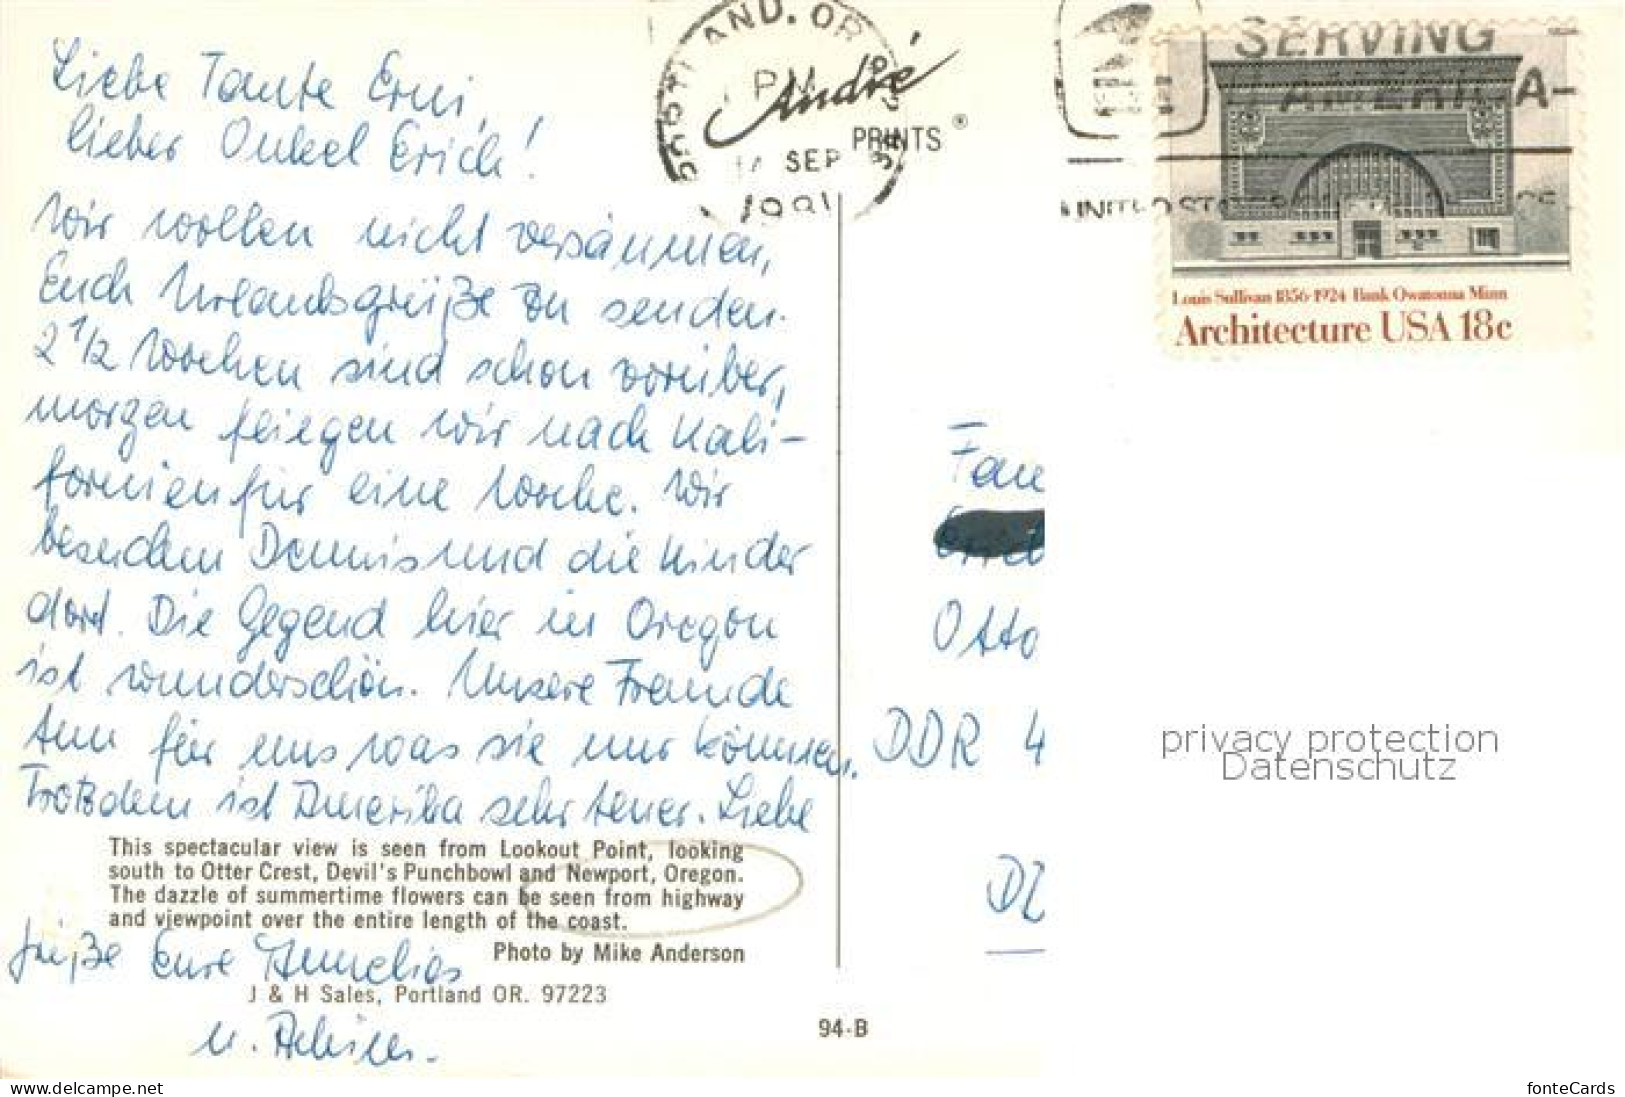 Liebe Tante Erni,
lieber Onkel Erich!
Wir wollen nicht versäumen,
Euch Urlaubsgrüße zu senden.
2 1/2 Wochen sind schon vorüber,
morgen fliegen wir nach Kali-
fornien für eine Woche. Wir
besuchen Dennis und die Kinder
dort. Die Gegend hier in Oregon
ist wunderschön. Unsere Freunde
tun für uns was sie nur können.
Trotzdem ist Amerika sehr teuer. Liebe
This spectacular view is seen from Lookout Point, looking
south to Otter Crest, Devil's Punchbowl and Newport, Oregon.
The dazzle of summertime flowers can be seen from highway
and viewpoint over the entire length of the coast.
Grüße Eure
Photo by Mike Anderson
J & H Sales, Portland OR. 97223
u.
94-B
PORTLAND, OR
PM
SEP
1981
André
PRINTS®
SERVING
AMERICA
UNITED STATES
Louis Sullivan 1856-1924 Bank Owatonna Minn
Architecture USA 18c
Fam
Otto
DDR 4
privacy protection
Datenschutz
www.delcampe.net
fonteCards